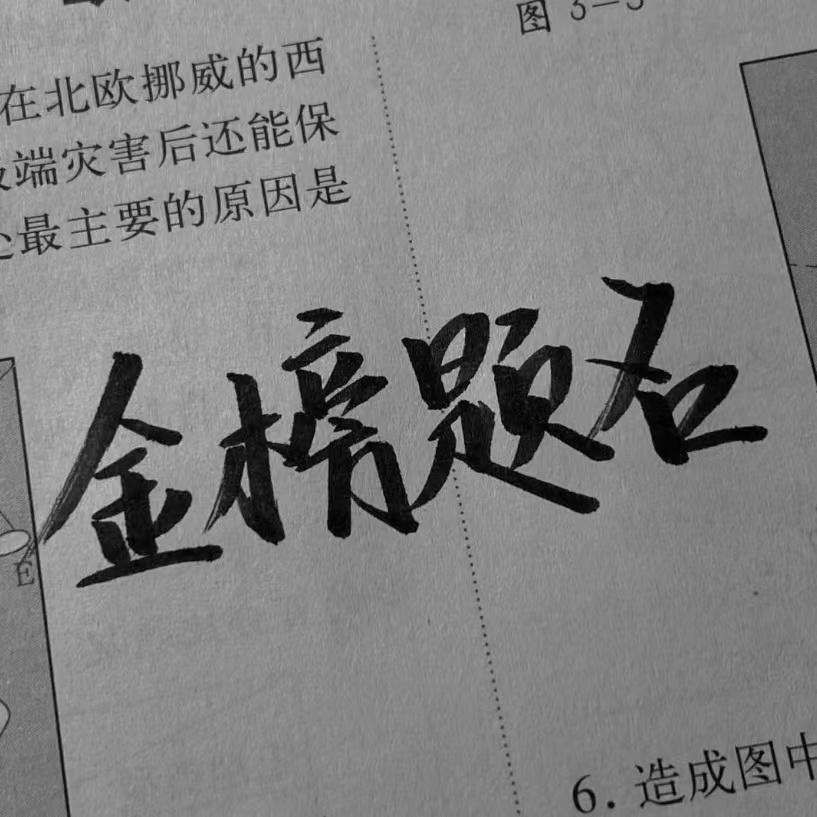 图 3-3
在北欧挪威的西
端灾害后还能保
最主要的原因是
金榜题名
E
6. 造成图中